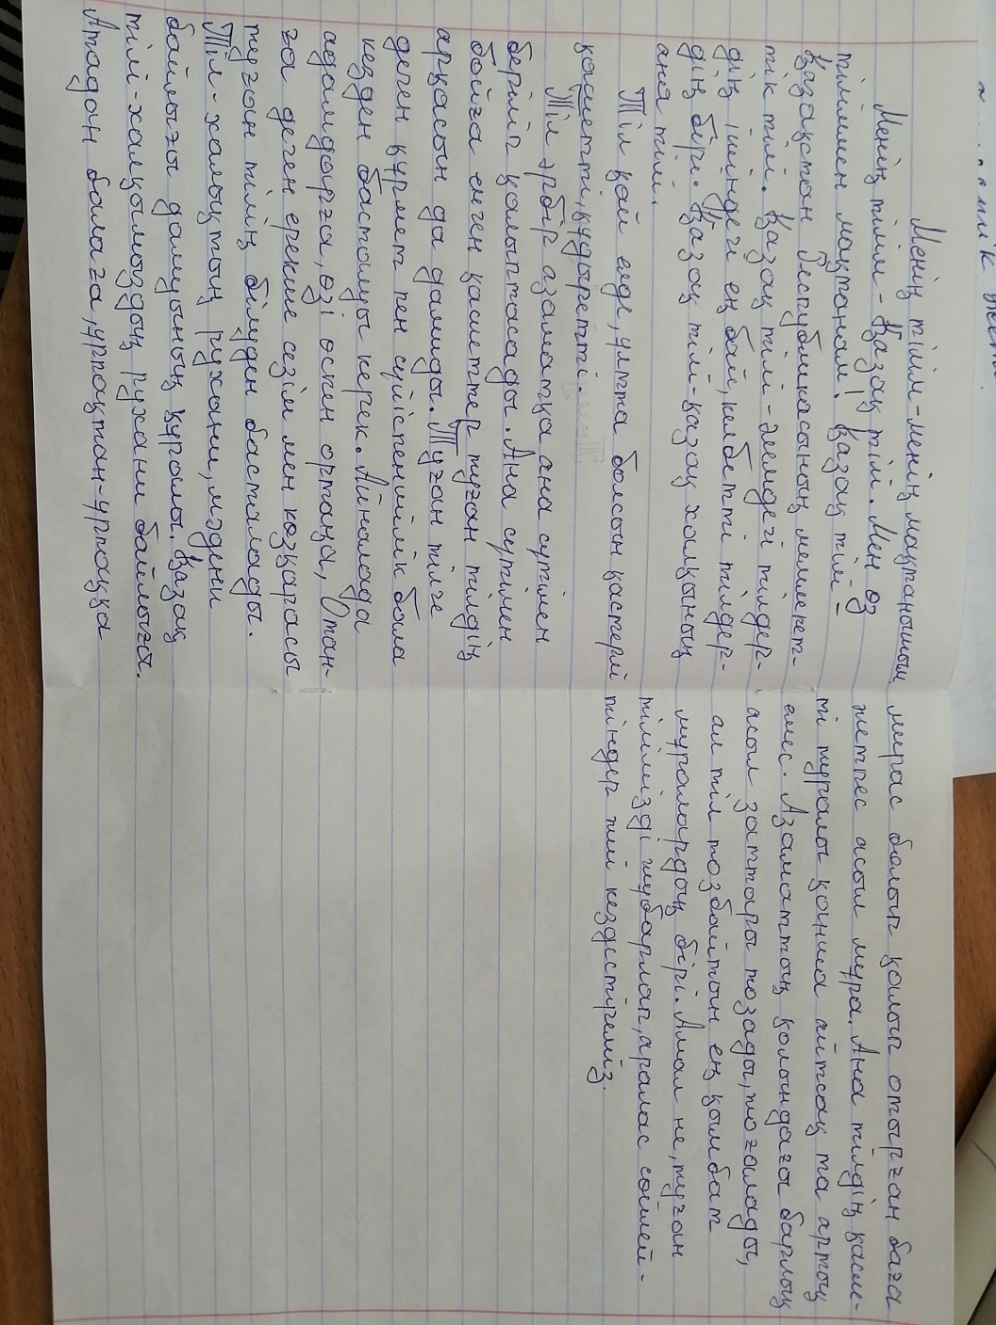 Менің тілім-менің мақтанышым
Менің тілім - Қазақ тілі. Мен өз
тіліммен мақтанам! Қазақ тілі -
Қазақстан Республикасының мемлекет-
тік тілі. Қазақ тілі - әлемдегі тілдер-
дің ішіндегі ең бай, келбетті тілдер-
дің бірі. Қазақ тілі-қазақ халқының
ана тілі.
Тіл қай елде, ұлтта болсын қастерлі
қасиетті, құдыретті.
Тіл әрбір азаматқа ана сүтімен
беріліп қалыптасады. Ана сүтімен
бойға енген қасиеттер туған тілдің
арқасын да дамиды. Туған тілге
деген құрмет пен сүйіспеншілік бала
кезден басталуы керек. Айналада
адамдарға, өзі өскен ортаға, Отан-
ға деген ерекше сезім мен көзқарасы
туған тілің білуден басталады.
Тіл-халықтың рухани, мәдени
байлығы дамуының құралы. Қазақ
тілі-халқымыздың рухани байлығы.
Атадан балаға, ұрпақтан-ұрпаққа
мирас болып қалып отырған баға
жетпес асыл мұра. Ана тілдің қасие-
ті туралы қанша айтсақ та артық
емес. Азаматтың қолындағы барлық
асыл заттары тозады, жоғалады,
ал тіл тозбайтын ең қымбат
мұралардың бірі. Амал не, туған
тілімізді шұбарлап, аралас сөйлей-
тіндер жиі кездестіреміз.